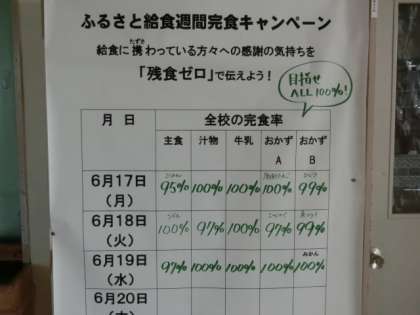 ふるさと給食週間完食キャンペーン
たずさ
給食に携わっている方々への感謝の気持ちを
「残食ゼロ」で伝えよう!
目指せ
ALL 100%!
月 日 全校の完食率
主食 汁物 牛乳 おかずA おかずB
ごはん
6月17日(月) 95% 100% 100% 100% 99%
うどん
6月18日(火) 100% 97% 100% 97% 99%
みかん
6月19日(水) 97% 100% 100% 100% 100%
6月20日